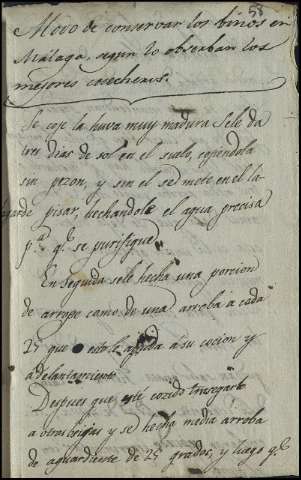 58
Modo de conservar los binos en
Málaga, segun lo observan los
mejores cosecheros.
Se coje la huva muy madura Sele da
tres dias de sol en el suelo, cojendola
sin pezon, y sin el se mete en el la-
gar de pisar, hechandole el agua precisa
pa. qe. se purifique
En seguida sele hecha una porcion
de arrope como de una arroba á cada
25 que esto le ayuda a su cocion y
adelantamiento
Despues que esté cocido trasegarlo
a otras basijas y se hecha media arroba
de aguardiente de 25 grados, y luego qe.